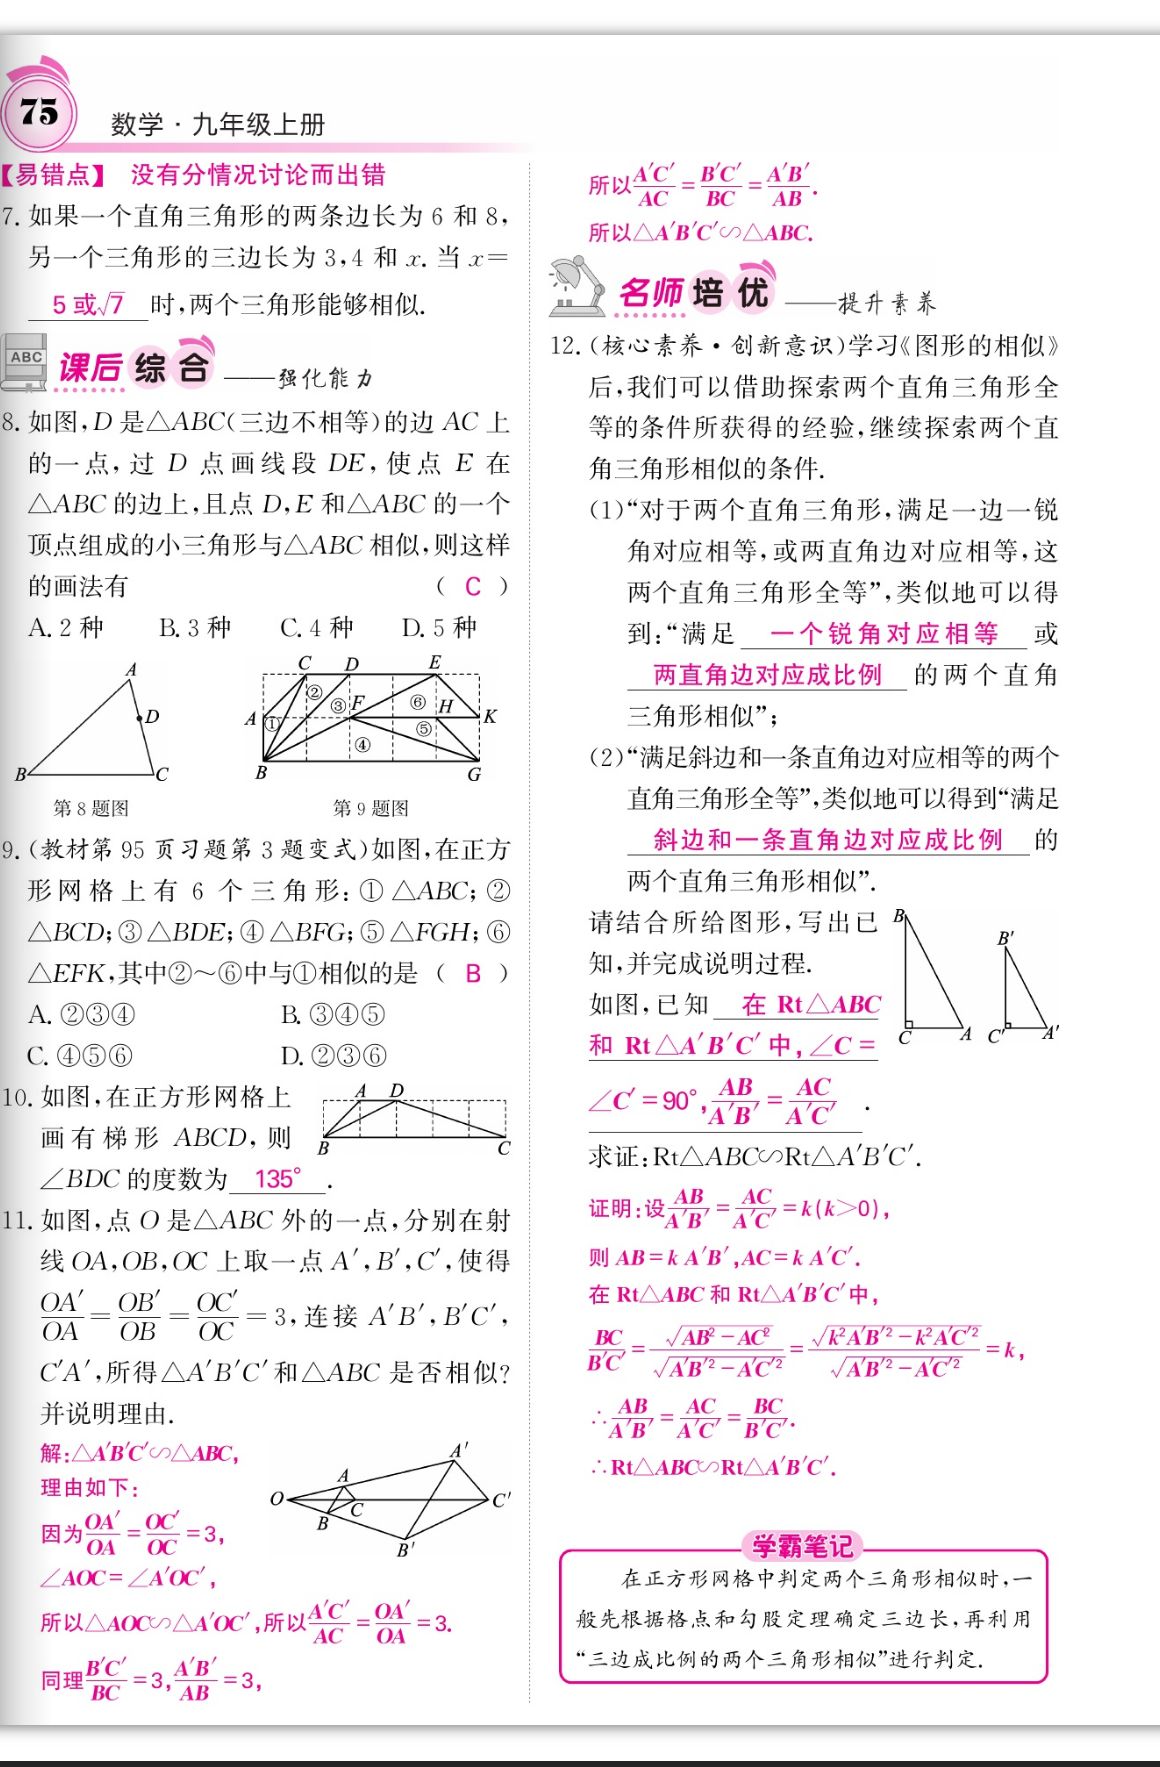 75
数学·九年级上册
【易错点】 没有分情况讨论而出错
7. 如果一个直角三角形的两条边长为 6 和 8,
另一个三角形的三边长为 3,4 和 x. 当 x=
5 或√7 时,两个三角形能够相似.
ABC 课后综合 ——强化能力
8. 如图,D 是△ABC(三边不相等)的边 AC 上
的一点,过 D 点画线段 DE,使点 E 在
△ABC 的边上,且点 D,E 和△ABC 的一个
顶点组成的小三角形与△ABC 相似,则这样
的画法有 ( C )
A. 2 种 B. 3 种 C. 4 种 D. 5 种
A
D
B C
第 8 题图
C D E
② ③ F ⑥ H
A ① ⑤ K
④
B G
第 9 题图
9. (教材第 95 页习题第 3 题变式)如图,在正方
形网格上有 6 个三角形:① △ABC; ②
△BCD;③ △BDE;④ △BFG;⑤ △FGH;⑥
△EFK,其中②～⑥中与①相似的是 ( B )
A. ②③④ B. ③④⑤
C. ④⑤⑥ D. ②③⑥
10. 如图,在正方形网格上
画有梯形 ABCD,则
∠BDC 的度数为 135° .
A D
B C
11. 如图,点 O 是△ABC 外的一点,分别在射
线 OA,OB,OC 上取一点 A′,B′,C′,使得
OA′/OA=OB′/OB=OC′/OC=3,连接 A′B′,B′C′,
C′A′,所得△A′B′C′和△ABC 是否相似?
并说明理由.
解:△A′B′C′∽△ABC,
理由如下:
因为OA′/OA=OC′/OC=3,
∠AOC=∠A′OC′,
所以△AOC∽△A′OC′,所以A′C′/AC=OA′/OA=3.
同理B′C′/BC=3,A′B′/AB=3,
A′
A
O C C′
B
B′
所以A′C′/AC=B′C′/BC=A′B′/AB.
所以△A′B′C′∽△ABC.
名师培优 ——提升素养
12. (核心素养·创新意识)学习《图形的相似》
后,我们可以借助探索两个直角三角形全
等的条件所获得的经验,继续探索两个直
角三角形相似的条件.
(1)“对于两个直角三角形,满足一边一锐
角对应相等,或两直角边对应相等,这
两个直角三角形全等”,类似地可以得
到:“满足 一个锐角对应相等 或
两直角边对应成比例 的两个直角
三角形相似”;
(2)“满足斜边和一条直角边对应相等的两个
直角三角形全等”,类似地可以得到“满足
斜边和一条直角边对应成比例 的
两个直角三角形相似”.
请结合所给图形,写出已
知,并完成说明过程.
如图,已知 在 Rt△ABC
和 Rt△A′B′C′中,∠C=
∠C′=90°,AB/A′B′=AC/A′C′ .
B
B′
C A C′ A′
求证:Rt△ABC∽Rt△A′B′C′.
证明:设AB/A′B′=AC/A′C′=k(k>0),
则 AB=k A′B′,AC=k A′C′.
在 Rt△ABC 和 Rt△A′B′C′中,
BC/B′C′=√(AB²-AC²)/√(A′B′²-A′C′²)=√(k²A′B′²-k²A′C′²)/√(A′B′²-A′C′²)=k,
∴AB/A′B′=AC/A′C′=BC/B′C′.
∴Rt△ABC∽Rt△A′B′C′.
学霸笔记
在正方形网格中判定两个三角形相似时,一
般先根据格点和勾股定理确定三边长,再利用
“三边成比例的两个三角形相似”进行判定.